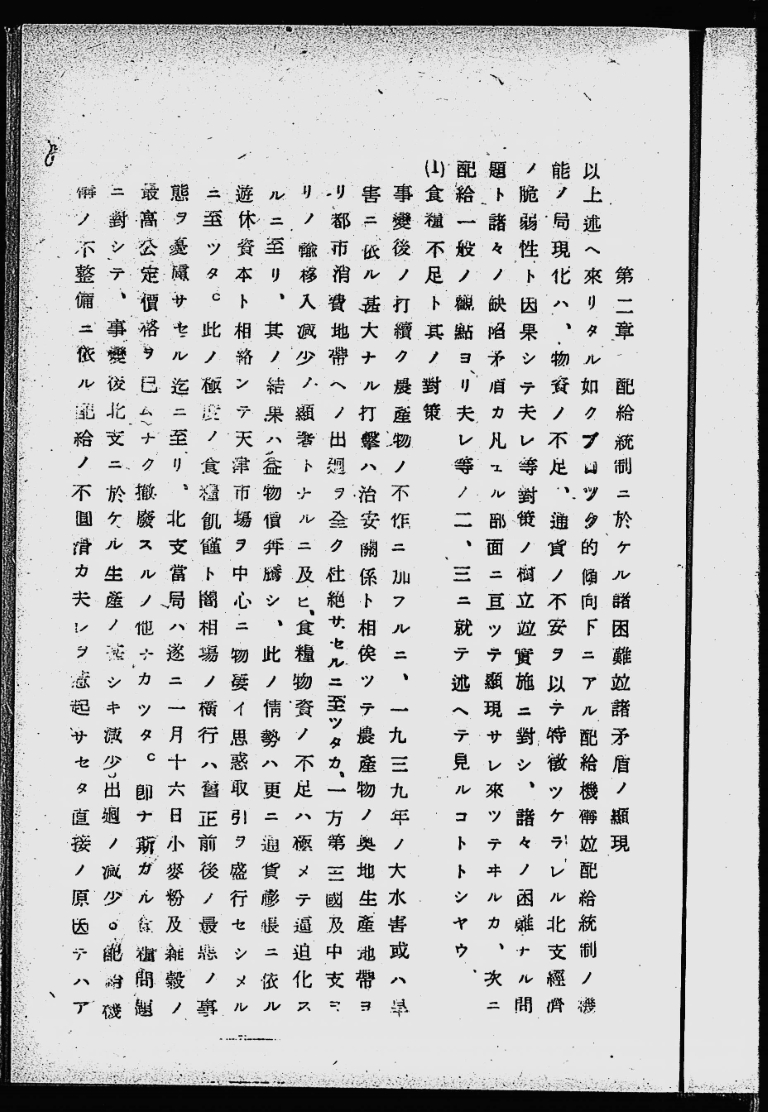 第二章 配給統制ニ於ケル諸困難竝諸矛盾ノ顯現
以上述ヘ來リタル如クブロツク的傾向下ニアル配給機構竝配給統制ノ機
能ノ局現化ハ、物資ノ不足、通貨ノ不安ヲ以テ特徴ツケラレル北支經濟
ノ脆弱性ト因果シテ夫レ等對策ノ樹立竝實施ニ對シ、諸々ノ困難ナル問
題ト諸々ノ缺陷矛盾カ凡ユル部面ニ亘ツテ顯現サレ來ツテヰルカ、次ニ
配給一般ノ觀點ヨリ夫レ等ノ二、三ニ就テ述ヘテ見ルコトトシヤウ、
(1)食糧不足ト其ノ對策
事變後ノ打續ク農産物ノ不作ニ加フルニ、一九三九年ノ大水害或ハ旱
害ニ依ル甚大ナル打擊ハ治安關係ト相俟ツテ農産物ノ奥地生産地帶ヨ
リ都市消費地帶ヘノ出廻ヲ全ク杜絶サセルニ至ツタカ、一方第三國及中支ヨ
リノ輸移入減少ノ顯著トナルニ及ヒ、食糧物資ノ不足ハ極メテ逼迫化ス
ルニ至リ、其ノ結果ハ益物價昇騰シ、此ノ情勢ハ更ニ通貨膨脹ニ依ル
遊休資本ト相絡ンテ天津市場ヲ中心ニ物凄イ思惑取引ヲ盛行セシメル
ニ至ツタ。此ノ極度ノ食糧飢饉ト闇相場ノ横行ハ舊正前後ノ最悪ノ事
態ヲ憂慮サセル迄ニ至リ、北支當局ハ遂ニ一月十六日小麥粉及雜穀ノ
最高公定價格ヲ已ムナク撤廢スルノ他ナカツタ。卽チ斯カル食糧問題
ニ對シテ、事變後北支ニ於ケル生産ノ甚シキ減少出廻ノ減少。配給機
構ノ不整備ニ依ル配給ノ不圓滑カ夫レヲ惹起サセタ直接ノ原因テハア
8